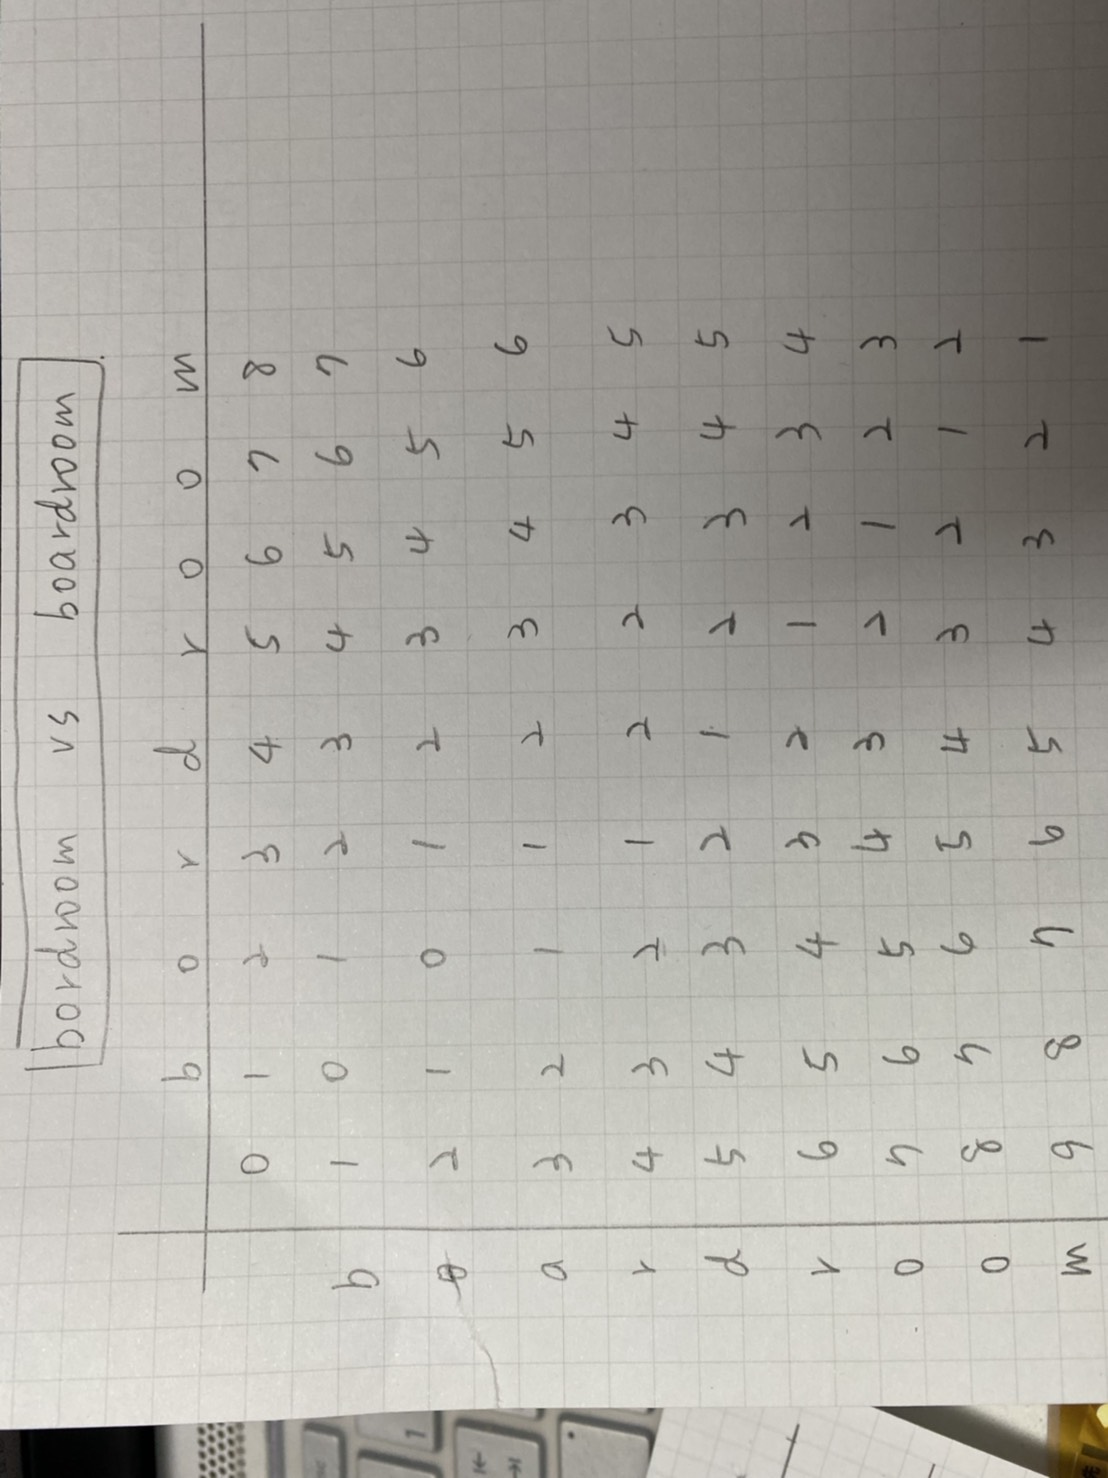 bordroom vs boardroom
b o r d r o o m
0 1 2 3 4 5 6 7 8
b 1 0 1 2 3 4 5 6 7
o 2 1 0 1 2 3 4 5 6
a 3 2 1 1 2 3 4 5 6
r 4 3 2 1 2 2 3 4 5
d 5 4 3 2 1 2 3 4 5
r 6 5 4 3 2 1 2 3 4
o 7 6 5 4 3 2 1 2 3
o 8 7 6 5 4 3 2 1 2
m 9 8 7 6 5 4 3 2 1